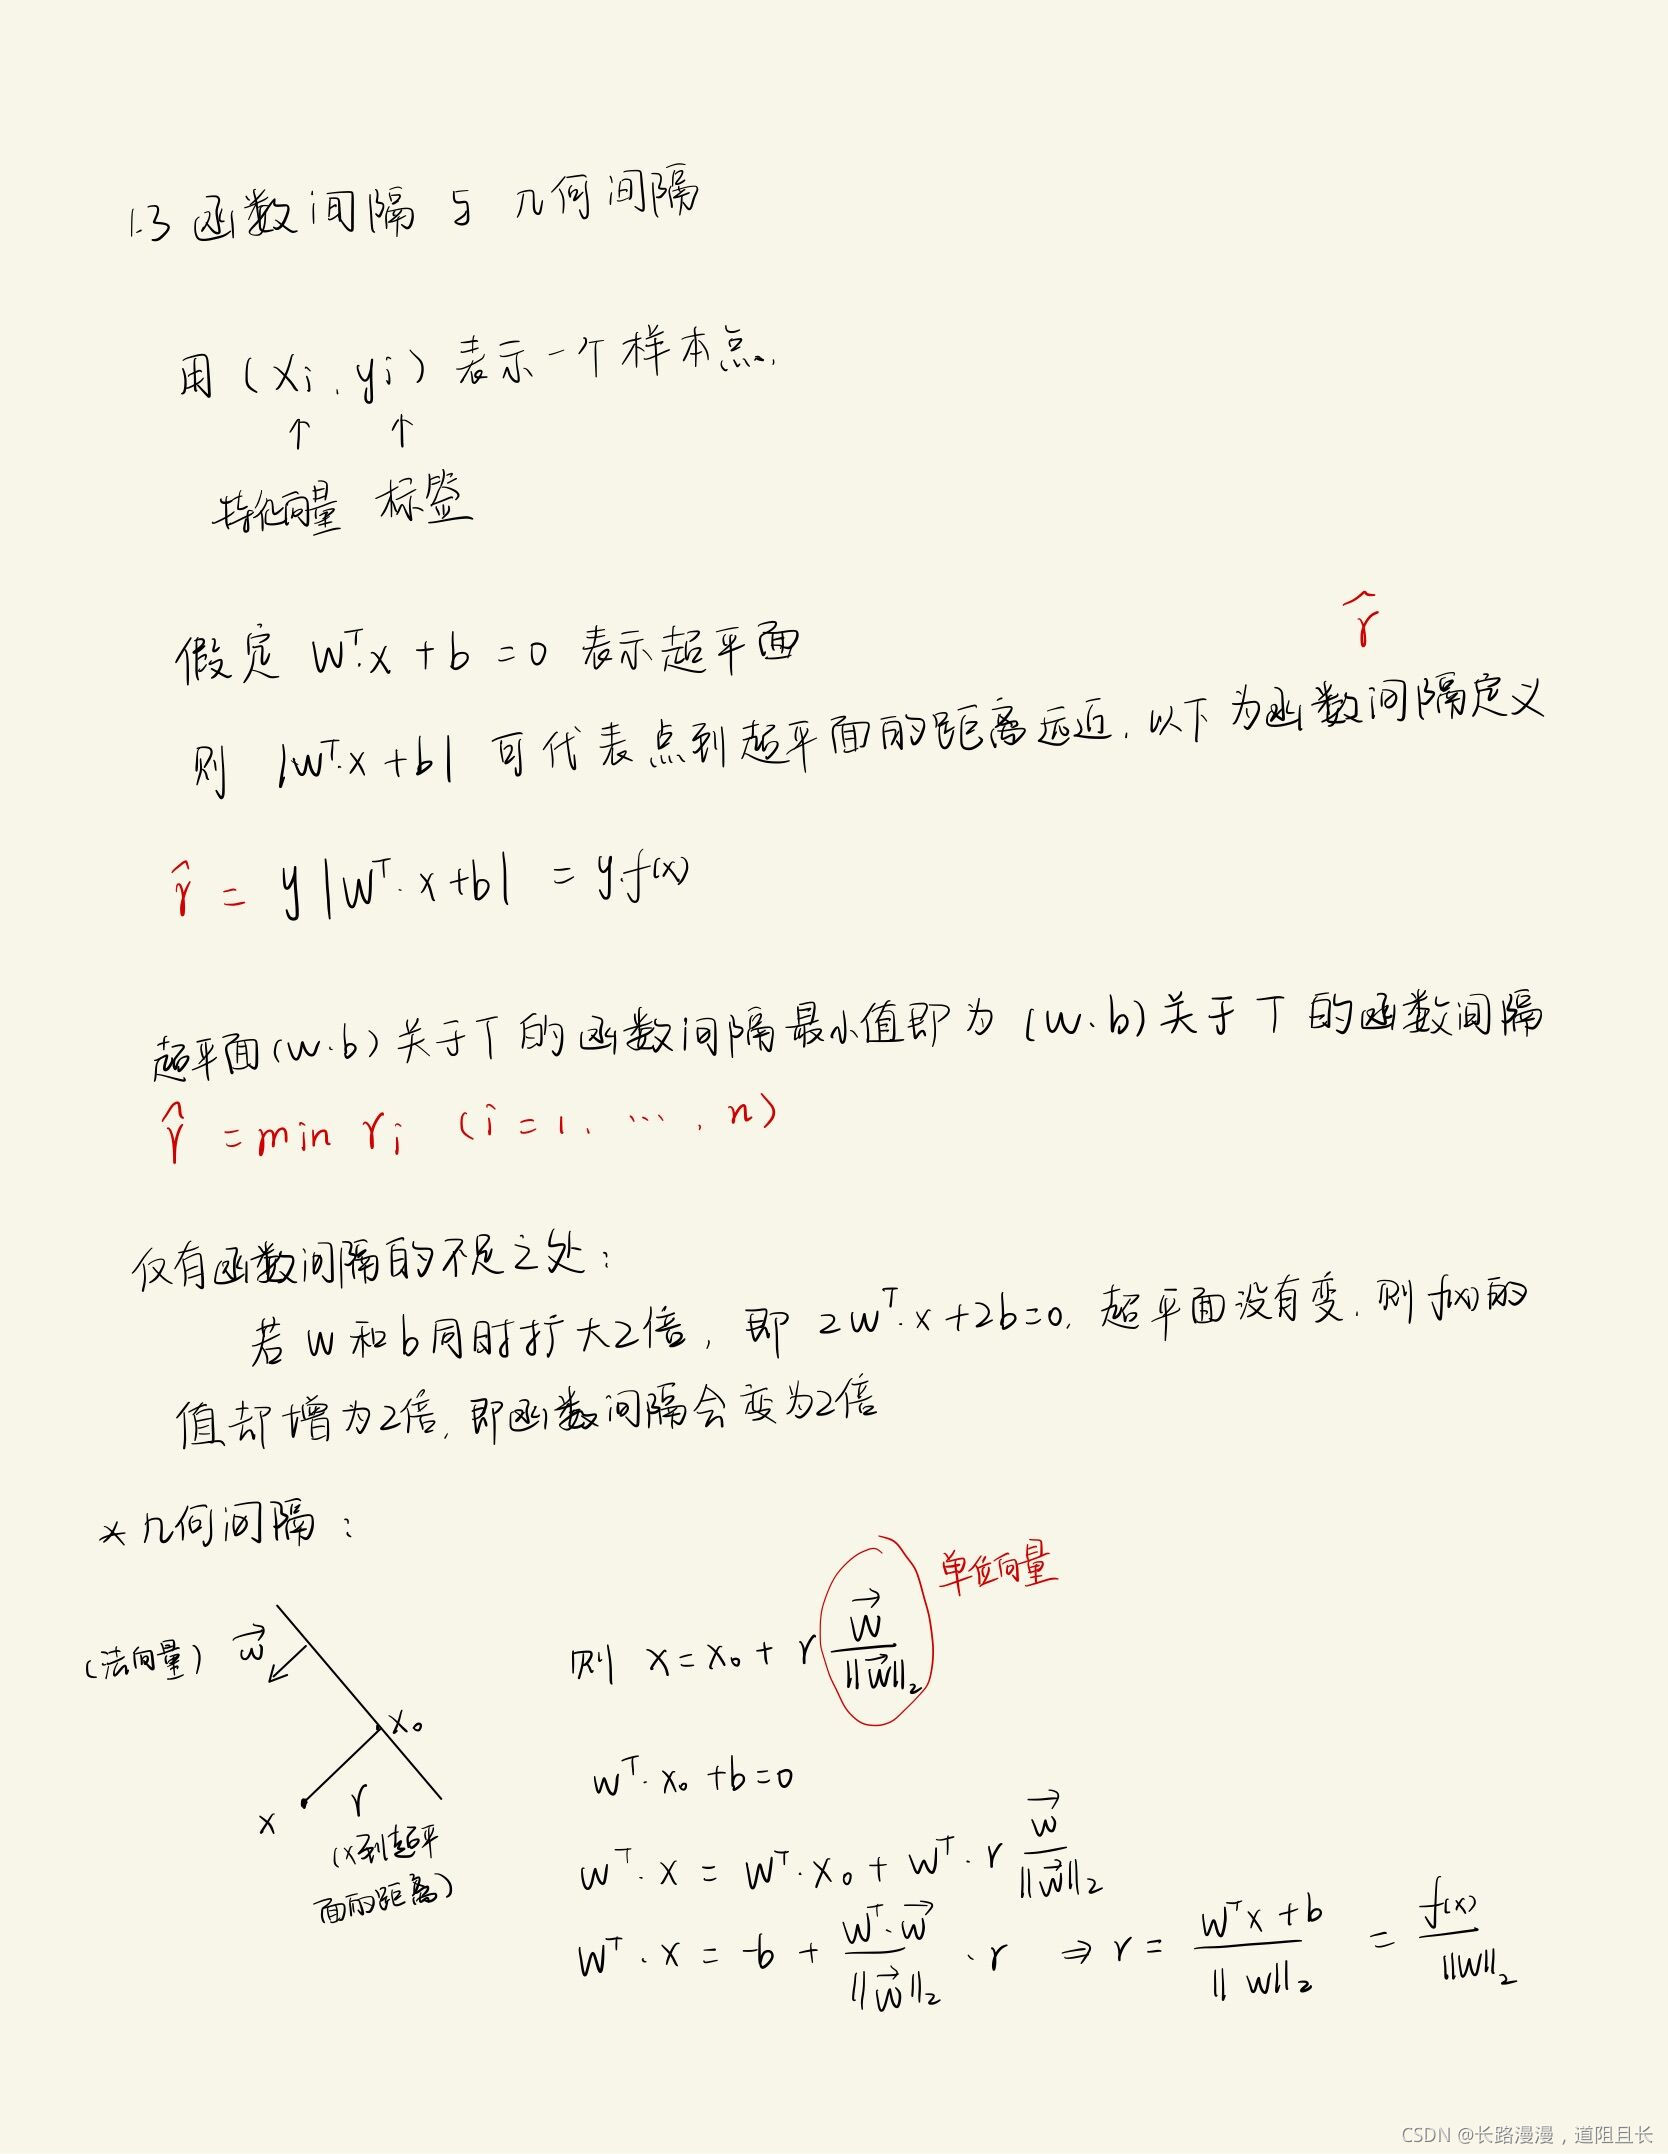 1.3 函数间隔与几何间隔
用(xi, yi)表示一个样本点,
↑ ↑
特征向量 标签
r̂
假定 wᵀ·x + b = 0 表示超平面
则 |wᵀ·x + b| 可代表点到超平面的距离远近, 以下为函数间隔定义
r̂ = y|wᵀ·x+b| = y·f(x)
超平面(w·b)关于T的函数间隔最小值即为(w·b)关于T的函数间隔
r̂ = min ri (i=1, ···, n)
仅有函数间隔的不足之处:
若w和b同时扩大2倍, 即 2wᵀ·x+2b=0, 超平面没有变, 则f(x)的
值却增为2倍, 即函数间隔会变为2倍
* 几何间隔:
单位向量
(法向量) w⃗
则 x = x₀ + r w⃗/||w⃗||₂
x₀
wᵀ·x₀ + b = 0
x r
(x到超平
面的距离)
wᵀ·x = wᵀ·x₀ + wᵀ·r w⃗/||w⃗||₂
wᵀ·x = -b + wᵀ·w⃗/||w⃗||₂ · r ⇒ r = wᵀx+b/||w||₂ = f(x)/||w||₂
CSDN @长路漫漫，道阻且长